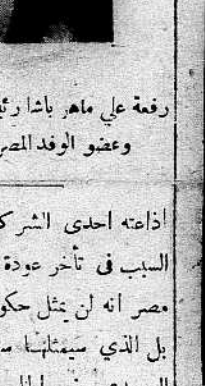 رفعة علي ماهر باشا رئي
وعضو الوفد المصر
اذاعته احدى الشرك
السبب فى تأخر عودة
مصر انه لن يمثل حكو
بل الذي سيمثلهـا سـ